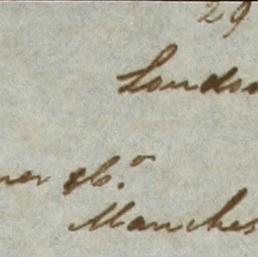 29
London
ner & Co.
Manches